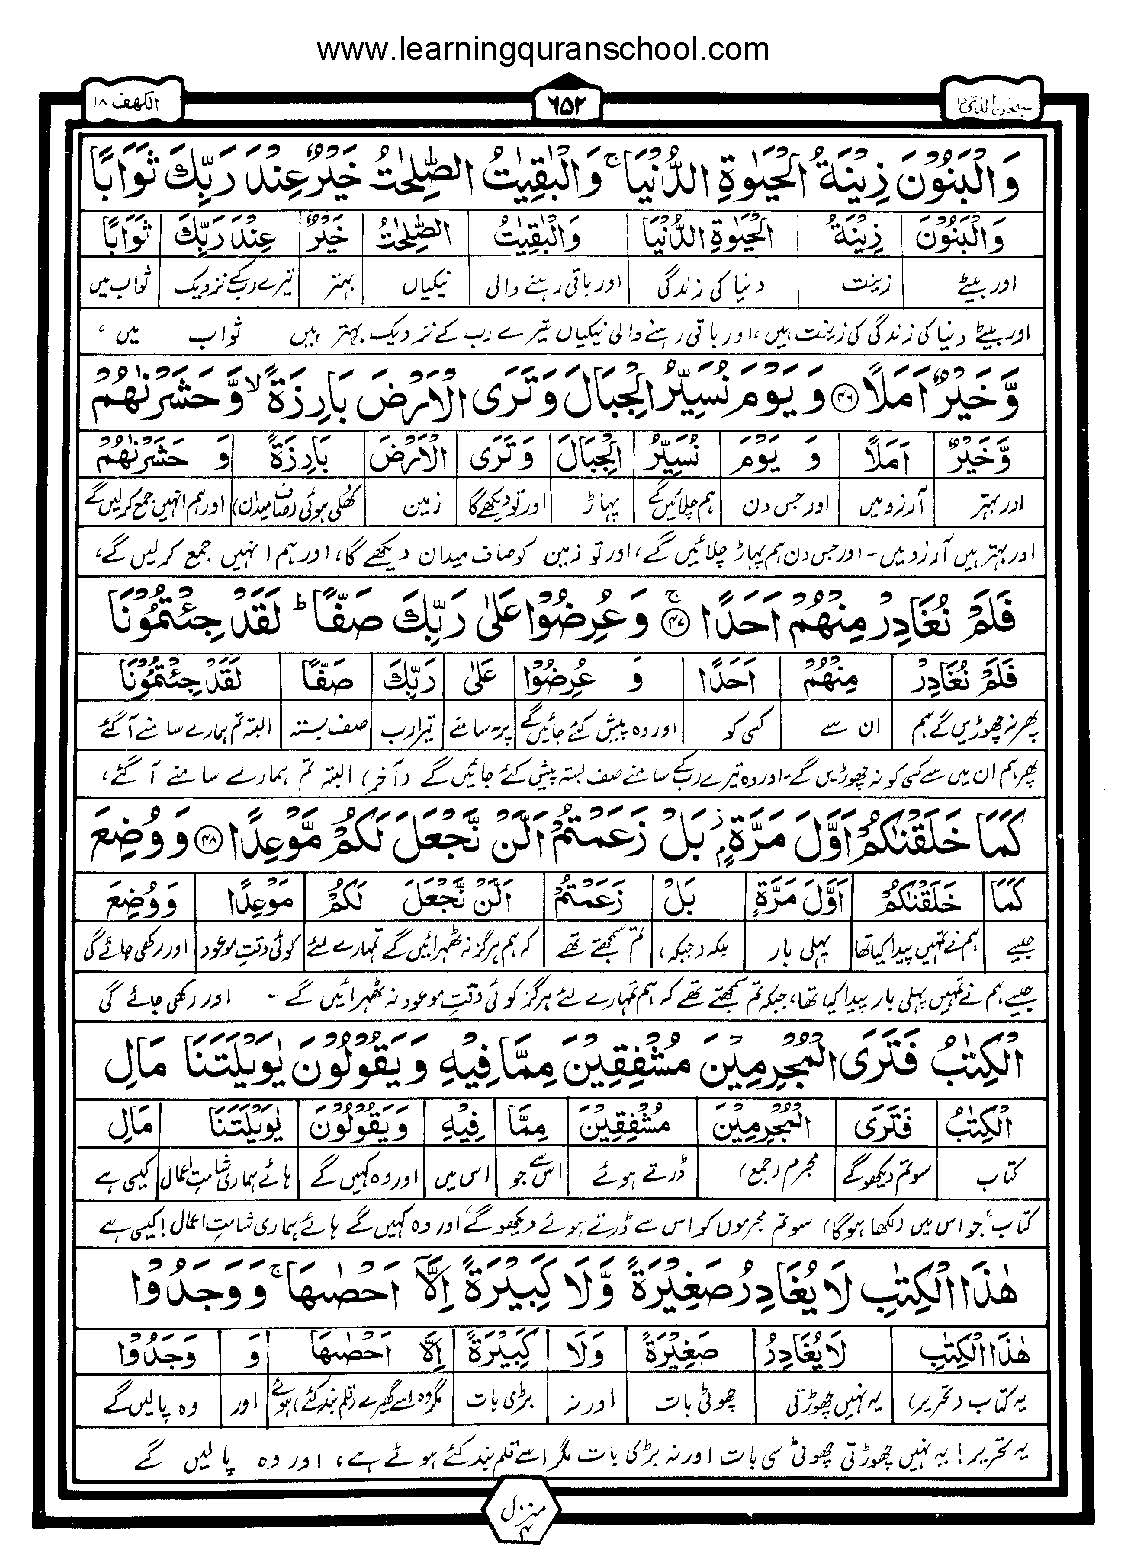 www.learningquranschool.com
الکہف ۱۸
٦٥٢
سبحٰن الذی
وَالْبَنُوْنَ زِيْنَةُ الْحَيٰوةِ الدُّنْيَا ۚ وَالْبٰقِيٰتُ الصّٰلِحٰتُ خَيْرٌ عِنْدَ رَبِّكَ ثَوَابًا
وَالْبَنُوْنَ زِيْنَةُ الْحَيٰوةِ الدُّنْيَا وَالْبٰقِيٰتُ الصّٰلِحٰتُ خَيْرٌ عِنْدَ رَبِّكَ ثَوَابًا
اور بیٹے زینت دنیا کی زندگی اور باقی رہنے والی نیکیاں بہتر تیرے رب کے نزدیک ثواب میں
اور بیٹے دنیا کی زندگی کی زینت ہیں، اور باقی رہنے والی نیکیاں تیرے رب کے نزدیک بہتر ہیں ثواب میں،
وَّخَيْرٌ اَمَلًا ۴۶ وَيَوْمَ نُسَيِّرُ الْجِبَالَ وَتَرَى الْاَرْضَ بَارِزَةً ۙ وَّحَشَرْنٰهُمْ
وَّخَيْرٌ اَمَلًا وَ يَوْمَ نُسَيِّرُ الْجِبَالَ وَتَرَى الْاَرْضَ بَارِزَةً وَ حَشَرْنٰهُمْ
اور بہتر آرزو میں اور جس دن ہم چلائیں گے پہاڑ اور تو دیکھے گا زمین کھلی ہوئی (صاف میدان) اور ہم انہیں جمع کرلیں گے
اور بہتر ہیں آرزو میں۔ اور جس دن ہم پہاڑ چلائیں گے، اور تو زمین کو صاف میدان دیکھے گا، اور ہم انہیں جمع کرلیں گے،
فَلَمْ نُغَادِرْ مِنْهُمْ اَحَدًا ۚ ۴۷ وَعُرِضُوْا عَلٰى رَبِّكَ صَفًّا ؕ لَقَدْ جِئْتُمُوْنَا
فَلَمْ نُغَادِرْ مِنْهُمْ اَحَدًا وَ عُرِضُوْا عَلٰى رَبِّكَ صَفًّا لَقَدْ جِئْتُمُوْنَا
پھر نہ چھوڑیں گے ہم ان سے کسی کو اور وہ پیش کئے جائیں گے پر۔ سامنے تیرا رب صف بستہ البتہ تم ہمارے سامنے آگئے
پھر ہم ان میں سے کسی کو نہ چھوڑیں گے۔ اور وہ تیرے رب کے سامنے صف بستہ پیش کئے جائیں گے (آخر) البتہ تم ہمارے سامنے آگئے،
كَمَا خَلَقْنٰكُمْ اَوَّلَ مَرَّةٍ ۢ ؗ بَلْ زَعَمْتُمْ اَلَّنْ نَّجْعَلَ لَكُمْ مَّوْعِدًا ۴۸ وَوُضِعَ
كَمَا خَلَقْنٰكُمْ اَوَّلَ مَرَّةٍ بَلْ زَعَمْتُمْ اَلَّنْ نَّجْعَلَ لَكُمْ مَوْعِدًا وَوُضِعَ
جیسے ہم نے تمہیں پیدا کیا تھا پہلی بار بلکہ (جبکہ) تم سمجھتے تھے کہ ہم ہرگز نہ ٹھہرائیں گے تمہارے لئے کوئی وقتِ موعود اور رکھی جائے گی
جیسے ہم نے تمہیں پہلی بار پیدا کیا تھا، جبکہ تم سمجھتے تھے کہ ہم تمہارے لئے ہرگز کوئی وقتِ موعود نہ ٹھہرائیں گے۔ اور رکھی جائے گی
الْكِتٰبُ فَتَرَى الْمُجْرِمِيْنَ مُشْفِقِيْنَ مِمَّا فِيْهِ وَيَقُوْلُوْنَ يٰوَيْلَتَنَا مَالِ
الْكِتٰبُ فَتَرَى الْمُجْرِمِيْنَ مُشْفِقِيْنَ مِمَّا فِيْهِ وَيَقُوْلُوْنَ يٰوَيْلَتَنَا مَالِ
کتاب سو تم دیکھو گے مجرم (جمع) ڈرتے ہوئے اس سے جو اس میں اور وہ کہیں گے ہائے ہماری شامتِ اعمال کیسی ہے
کتاب، جو اس میں (لکھا ہوگا) سو تم مجرموں کو اس سے ڈرتے ہوئے دیکھو گے، اور وہ کہیں گے ہائے ہماری شامتِ اعمال! کیسی ہے
هٰذَا الْكِتٰبِ لَا يُغَادِرُ صَغِيْرَةً وَّلَا كَبِيْرَةً اِلَّاۤ اَحْصٰىهَا ۚ وَوَجَدُوْا
هٰذَا الْكِتٰبِ لَا يُغَادِرُ صَغِيْرَةً وَلَا كَبِيْرَةً اِلَّا اَحْصٰىهَا وَ وَجَدُوْا
یہ کتاب (تحریر) یہ نہیں چھوڑتی چھوٹی بات اور نہ بڑی بات مگر وہ اسے گھیرے (قلم بند کئے) ہوئے اور وہ پالیں گے
یہ تحریر! یہ نہیں چھوڑتی چھوٹی سی بات اور نہ بڑی بات مگر اسے قلم بند کئے ہوئے ہے، اور وہ پالیں گے
منزل ۴